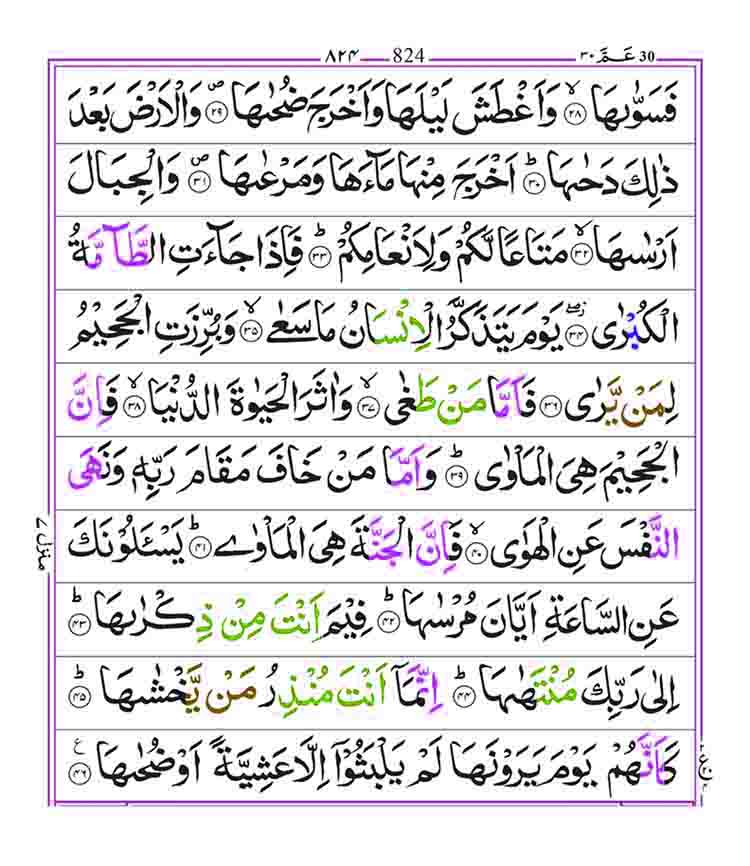 30 عَمَّ ٣٠ — 824 — ٨٢٤
فَسَوّٰىهَا ﴿٢٨﴾ۙ وَاَغْطَشَ لَيْلَهَا وَاَخْرَجَ ضُحٰىهَا ﴿٢٩﴾ۖ وَالْاَرْضَ بَعْدَ
ذٰلِكَ دَحٰىهَا ﴿٣٠﴾ؕ اَخْرَجَ مِنْهَا مَآءَهَا وَمَرْعٰىهَا ﴿٣١﴾ۖ وَالْجِبَالَ
اَرْسٰىهَا ﴿٣٢﴾ۙ مَتَاعًا لَّكُمْ وَلِاَنْعَامِكُمْ ﴿٣٣﴾ؕ فَاِذَا جَآءَتِ الطَّآمَّةُ
الْكُبْرٰى ﴿٣٤﴾ۖ يَوْمَ يَتَذَكَّرُ الْاِنْسَانُ مَا سَعٰى ﴿٣٥﴾ۙ وَبُرِّزَتِ الْجَحِيْمُ
لِمَنْ يَّرٰى ﴿٣٦﴾ فَاَمَّا مَنْ طَغٰى ﴿٣٧﴾ۙ وَاٰثَرَ الْحَيٰوةَ الدُّنْيَا ﴿٣٨﴾ۙ فَاِنَّ
الْجَحِيْمَ هِيَ الْمَاْوٰى ﴿٣٩﴾ؕ وَاَمَّا مَنْ خَافَ مَقَامَ رَبِّهٖ وَنَهَى
النَّفْسَ عَنِ الْهَوٰى ﴿٤٠﴾ۙ فَاِنَّ الْجَنَّةَ هِيَ الْمَاْوٰے ﴿٤١﴾ؕ يَسْـَٔلُوْنَكَ
عَنِ السَّاعَةِ اَيَّانَ مُرْسٰىهَا ﴿٤٢﴾ؕ فِيْمَ اَنْتَ مِنْ ذِكْرٰىهَا ﴿٤٣﴾ؕ
اِلٰى رَبِّكَ مُنْتَهٰىهَا ﴿٤٤﴾ؕ اِنَّمَآ اَنْتَ مُنْذِرُ مَنْ يَّخْشٰىهَا ﴿٤٥﴾ؕ
كَاَنَّهُمْ يَوْمَ يَرَوْنَهَا لَمْ يَلْبَثُوْٓا اِلَّا عَشِيَّةً اَوْ ضُحٰىهَا ﴿٤٦﴾ع
منزل ٧